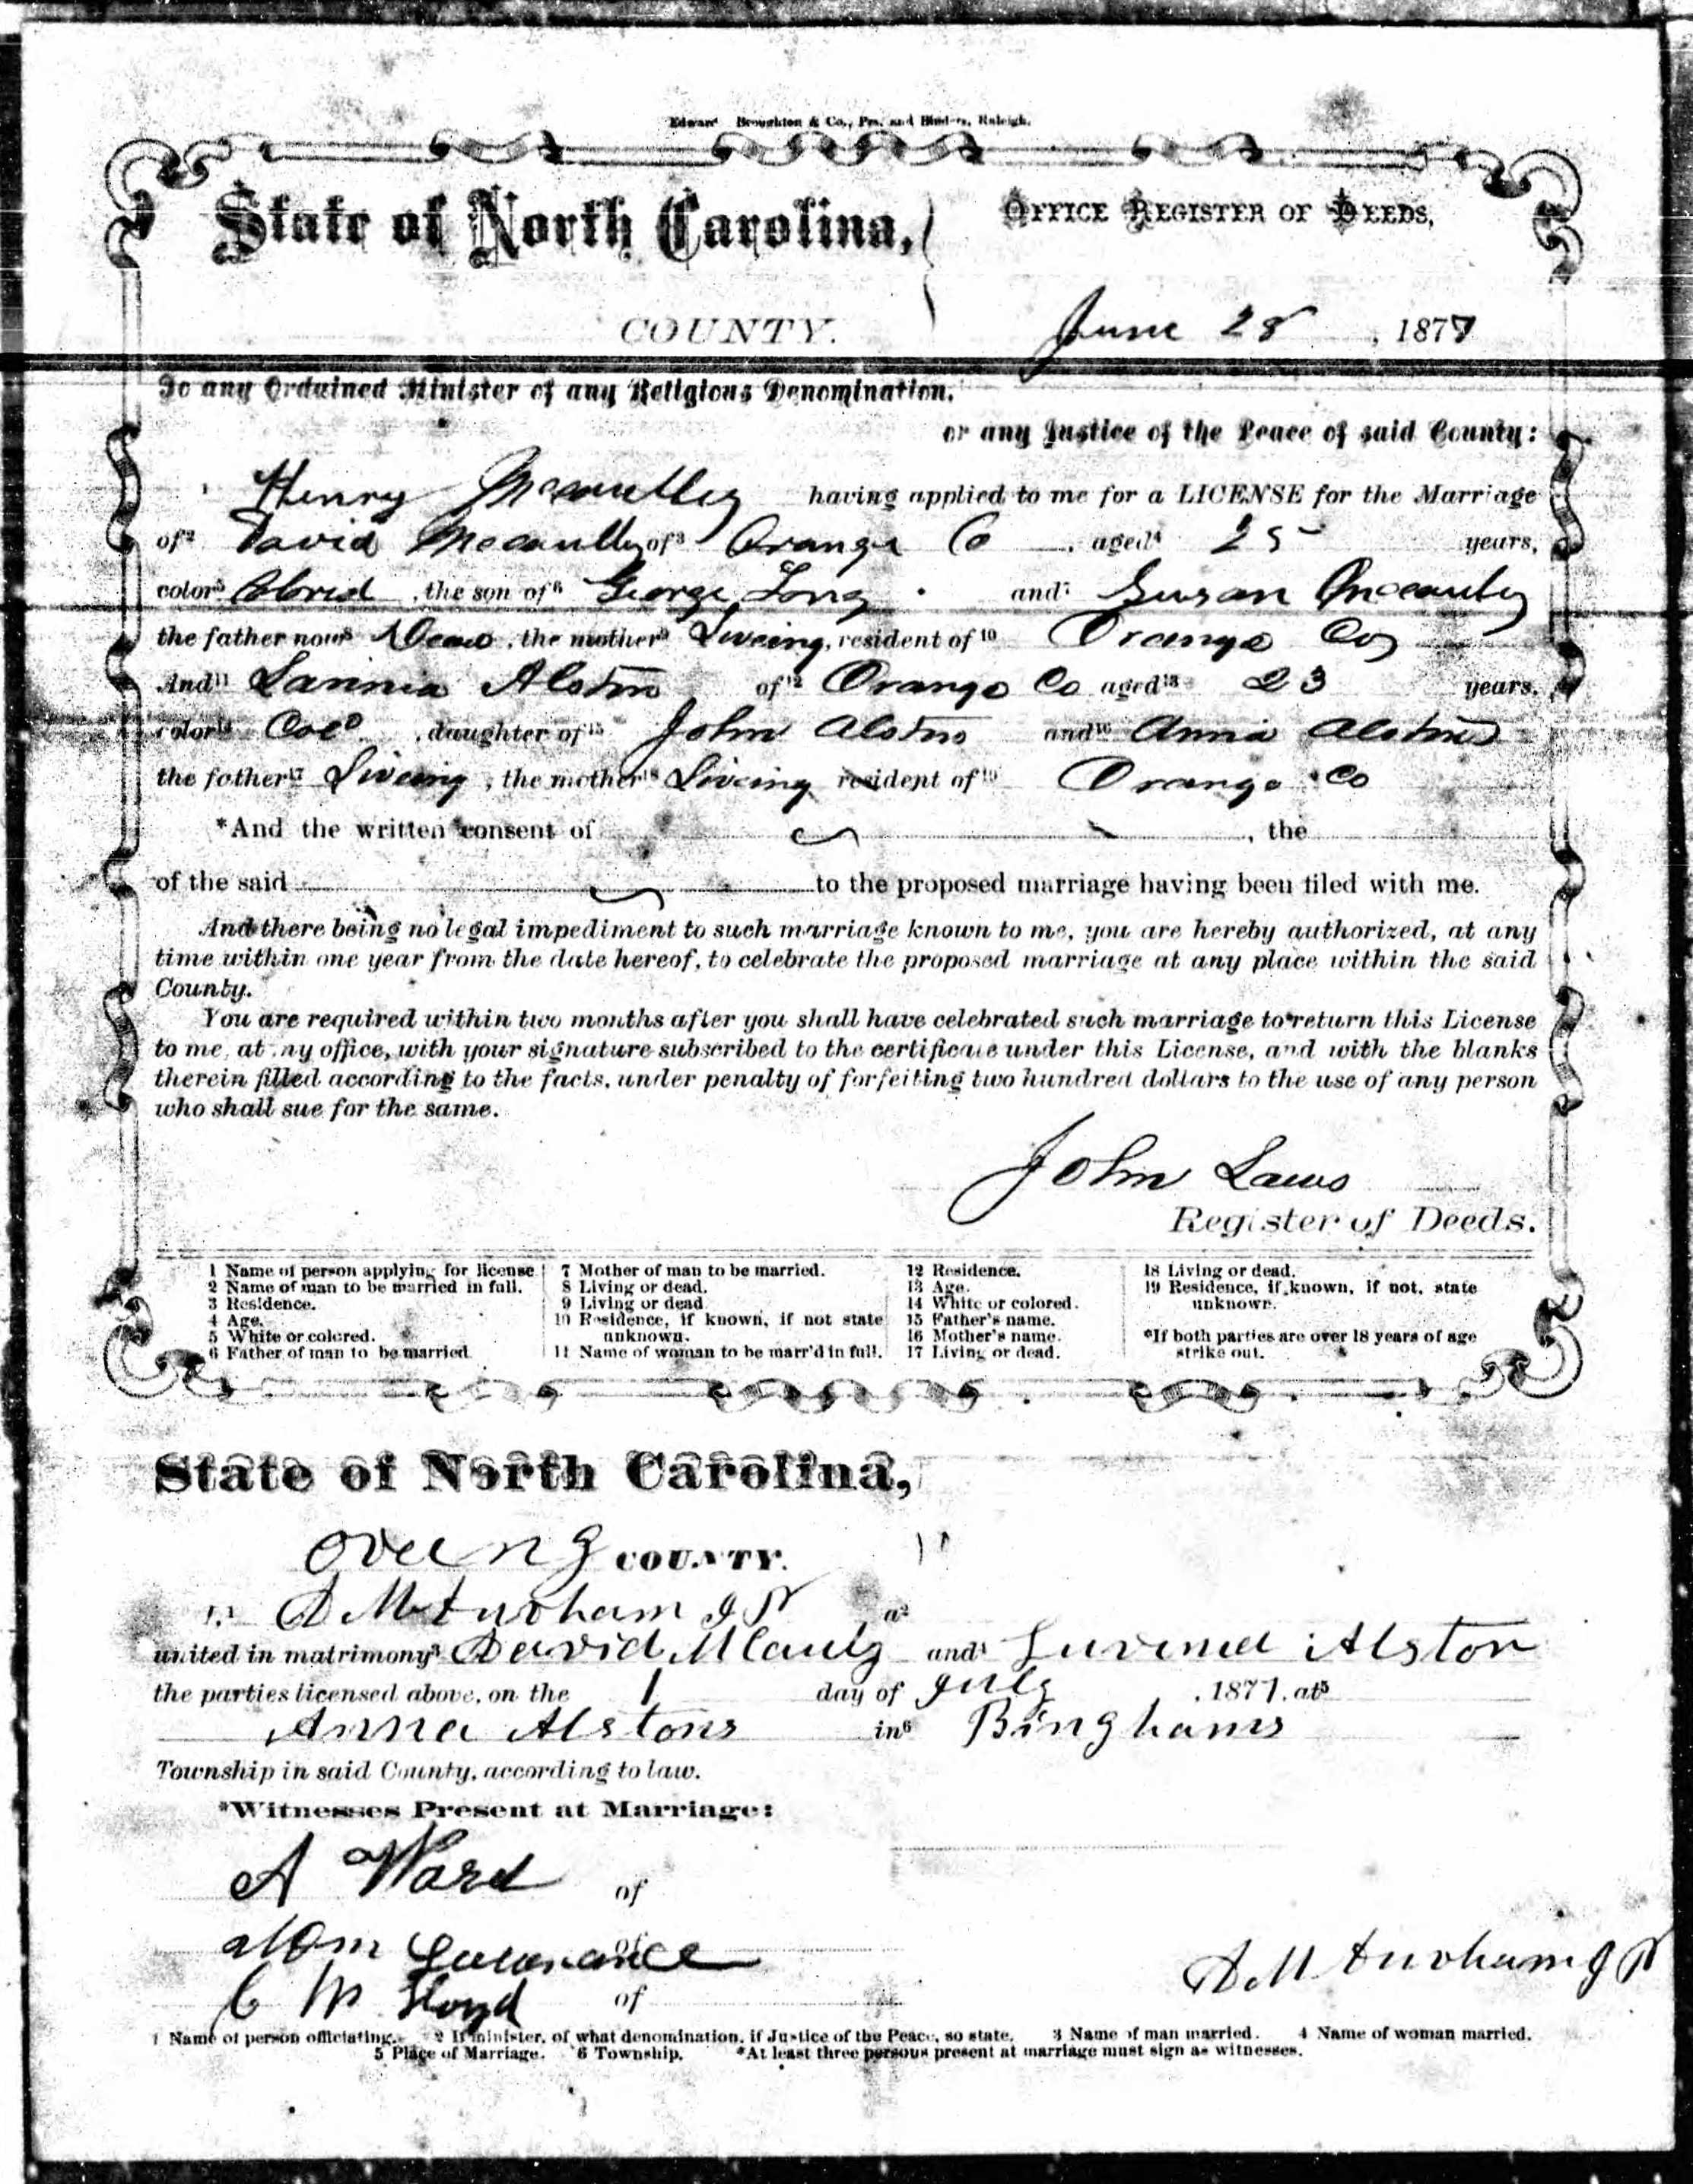 Edwards Broughton & Co., Prs. and Binders, Raleigh.
State of North Carolina, OFFICE REGISTER OF DEEDS,
COUNTY. June 28, 1877
To any Ordained Minister of any Religious Denomination,
or any Justice of the Peace of said County:
Henry Mccaulley having applied to me for a LICENSE for the Marriage
of² David Mccaulley of³ Orange Co, aged⁴ 25 years,
color⁵ Colored, the son of⁶ George Long and⁷ Susan Mccauley
the father now⁸ Dead, the mother⁹ Liveing, resident of¹⁰ Orange Co
And¹¹ Lavinia Alston of¹² Orange Co aged¹³ 23 years,
color¹⁴ Cold, daughter of¹⁵ John Alston and¹⁶ Annia Alston
the father¹⁷ Liveing, the mother¹⁸ Liveing resident of¹⁹ Orange Co
*And the written consent of , the
of the said to the proposed marriage having been filed with me.
And there being no legal impediment to such marriage known to me, you are hereby authorized, at any
time within one year from the date hereof, to celebrate the proposed marriage at any place within the said
County.
You are required within two months after you shall have celebrated such marriage to return this License
to me, at my office, with your signature subscribed to the certificate under this License, and with the blanks
therein filled according to the facts, under penalty of forfeiting two hundred dollars to the use of any person
who shall sue for the same.
John Laws
Register of Deeds.
1 Name of person applying for license 7 Mother of man to be married. 12 Residence. 18 Living or dead.
2 Name of man to be married in full. 8 Living or dead. 13 Age. 19 Residence, if known, if not, state
3 Residence. 9 Living or dead 14 White or colored. unknown.
4 Age. 10 Residence, if known, if not state 15 Father's name.
5 White or colored. unknown. 16 Mother's name. *If both parties are over 18 years of age
6 Father of man to be married 11 Name of woman to be marr'd in full. 17 Living or dead. strike out.
State of North Carolina,
Oreeng COUNTY.
I,¹ D M Durham J P a²
united in matrimony³ David MCauly and⁴ Luvenia Alston
the parties licensed above, on the 1 day of July, 1877, at⁵
Anna Alstons in⁶ Binghams
Township in said County, according to law.
*Witnesses Present at Marriage:
A Ward of
of
C M Floyd of
D M Durham J P
1 Name of person officiating. 2 If minister, of what denomination, if Justice of the Peace, so state. 3 Name of man married. 4 Name of woman married.
5 Place of Marriage. 6 Township. *At least three persons present at marriage must sign as witnesses.